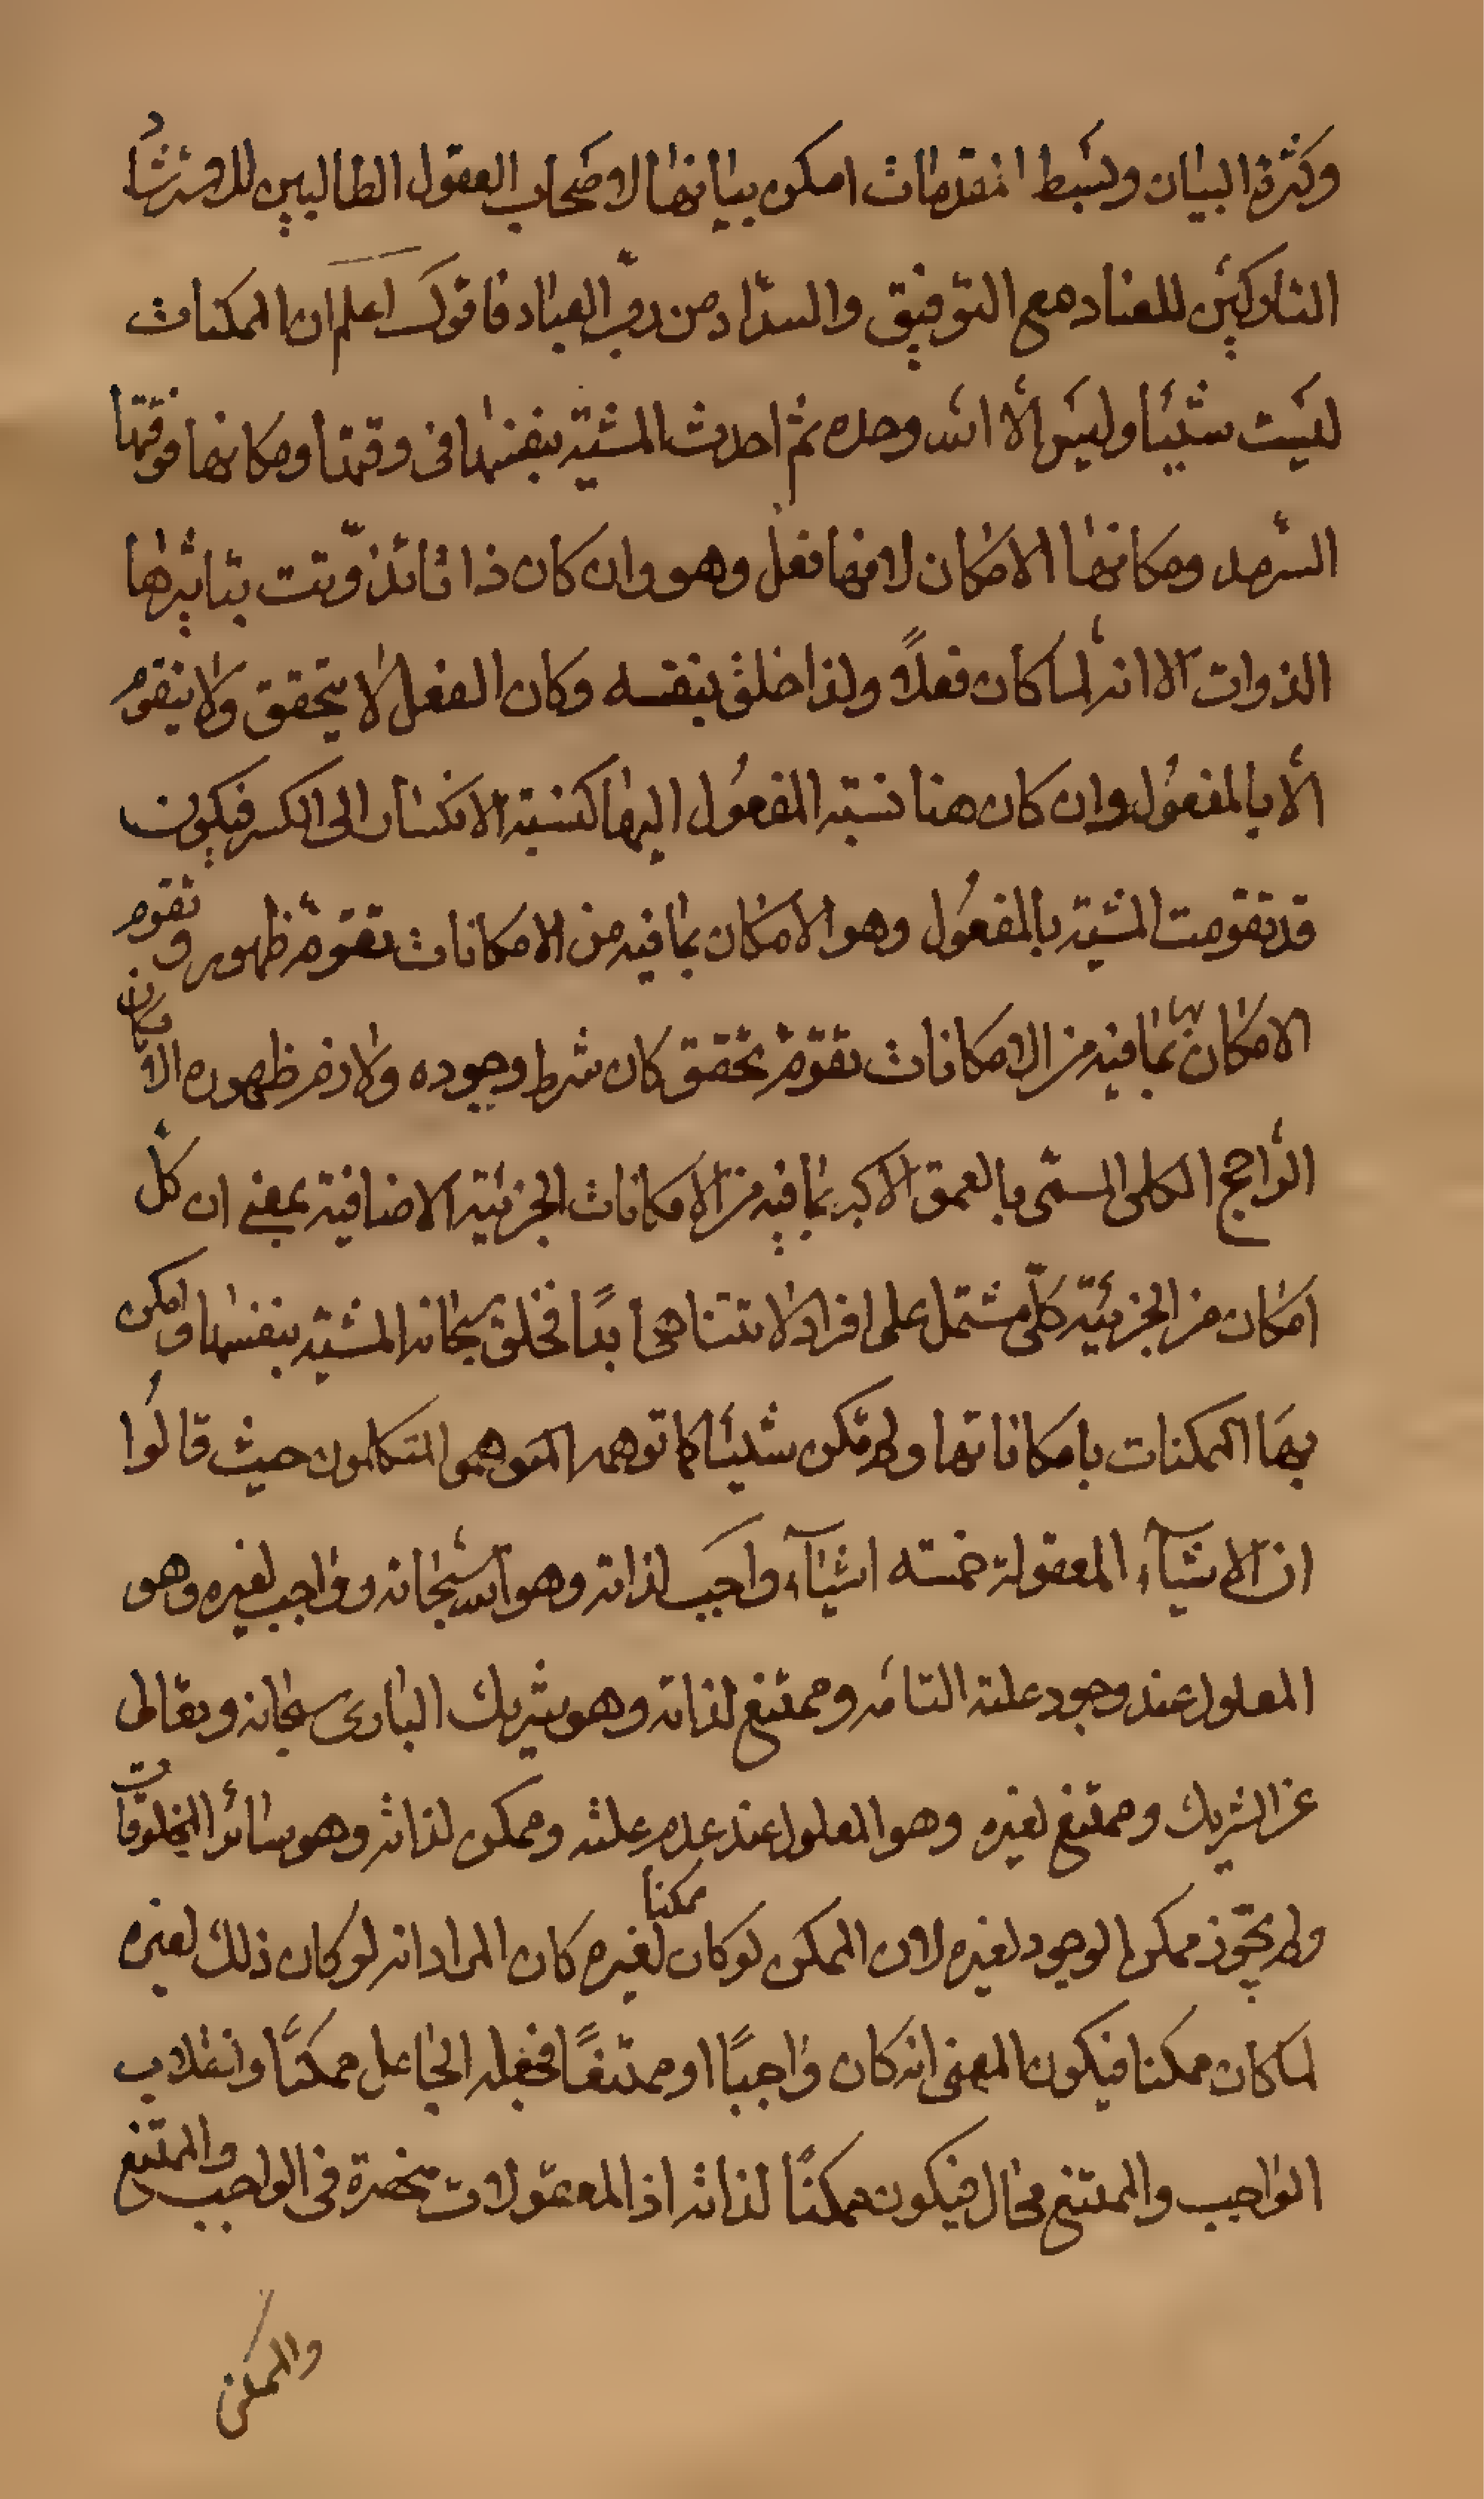 وكثرة البيان وبسط المقدمات امكن بيانها لاصحاب العقول الطالبين للاسترشاد
التاركين للعناد مع التوفيق والسداد من رب العباد فاقول اعلم ان الممكنات
ليست شيئا وليس الا الله وحده ثم احدث المشية بنفسها فى وقتها ومكانها فوقتها
السرمد ومكانها الامكان لانها فعل وهو وان كان ذاتا تذوّتت بتاثيرها
الذوات الا انه لما كان فعلاً ولذا خلق بنفسه وكان الفعل لا يتحقق ولا يتقوم
الا بالمفعول وان كان هنا نسبة المفعول اليها كنسبة الانكسار الى الكسر فيكون
قد تقومت المشية بالمفعول وهو الامكان بما فيه من الامكانات تقوّم ظهور وتقوم
الامكان بها بما فيه من الامكانات تقوّم تحقق كان شرط وجوده ولازم ظهوره الامكان
الراجح الكلى المسمّى بالعمق الاكبر بما فيه من الامكانات الجزئية الاضافية بمعنى ان كل
امكان من الجزئية كلّى مشتمل على افراد لا تتناهى ابداً فخلق سبحانه المشية بنفسها وامكن
بها الممكنات بامكاناتها ولم تكن شيئا كما توهمه المتوهمو المتكلمون حيث قالوا
ان الاشيآء المعقولة خمسته اشيآء واجب لذاته وهو الله سبحانه وواجب لغيره وهو
المعلول عند وجود علته التامه وممتنع لذاته وهو شريك البارى سبحانه وتعالى
عن الشريك وممتنع لغيره وهو المعلول عند عدم علته وممكن لذاته وهو سائر المخلوقات
ولم يجوز ممكن الوجود لغيره لان الممكن لو كان ممكنا لغيره كان المراد انه لو كان ذلك لغيره
لما كان ممكنا فيكون المعنى انه كان واجباً او ممتنعاً فجعله الجاعل ممكناً وانقلاب
الواجب والممتنع محال فيكون ممكناً لذاته اذ المعقولات منحصرة فى الواجب والممتنع
والممكن